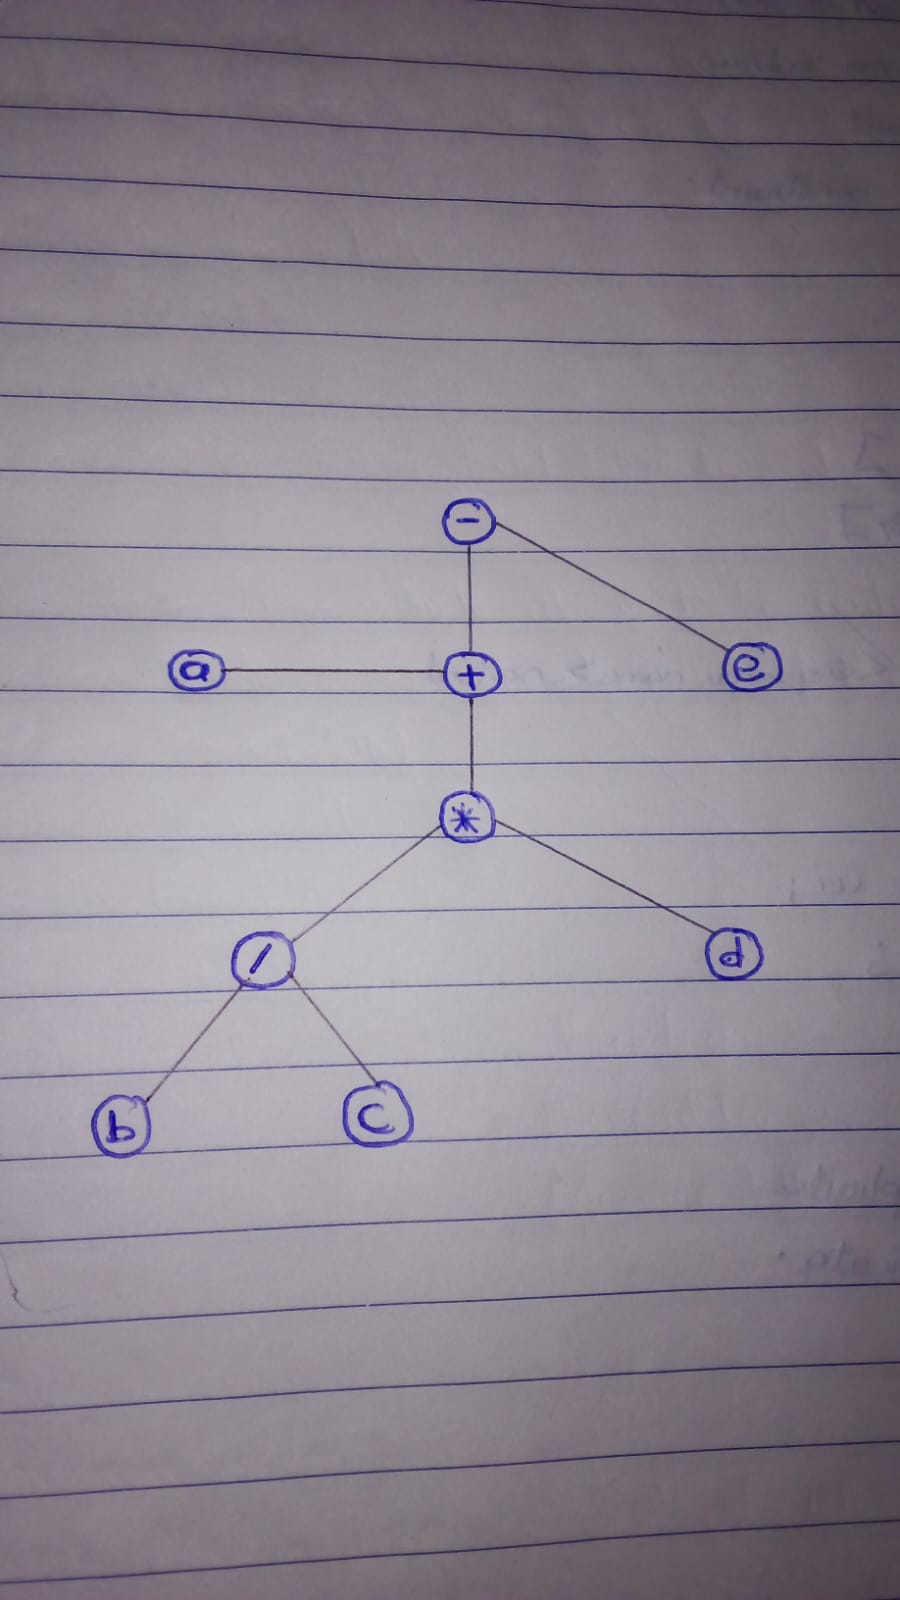 -
a + e
*
/ d
b c